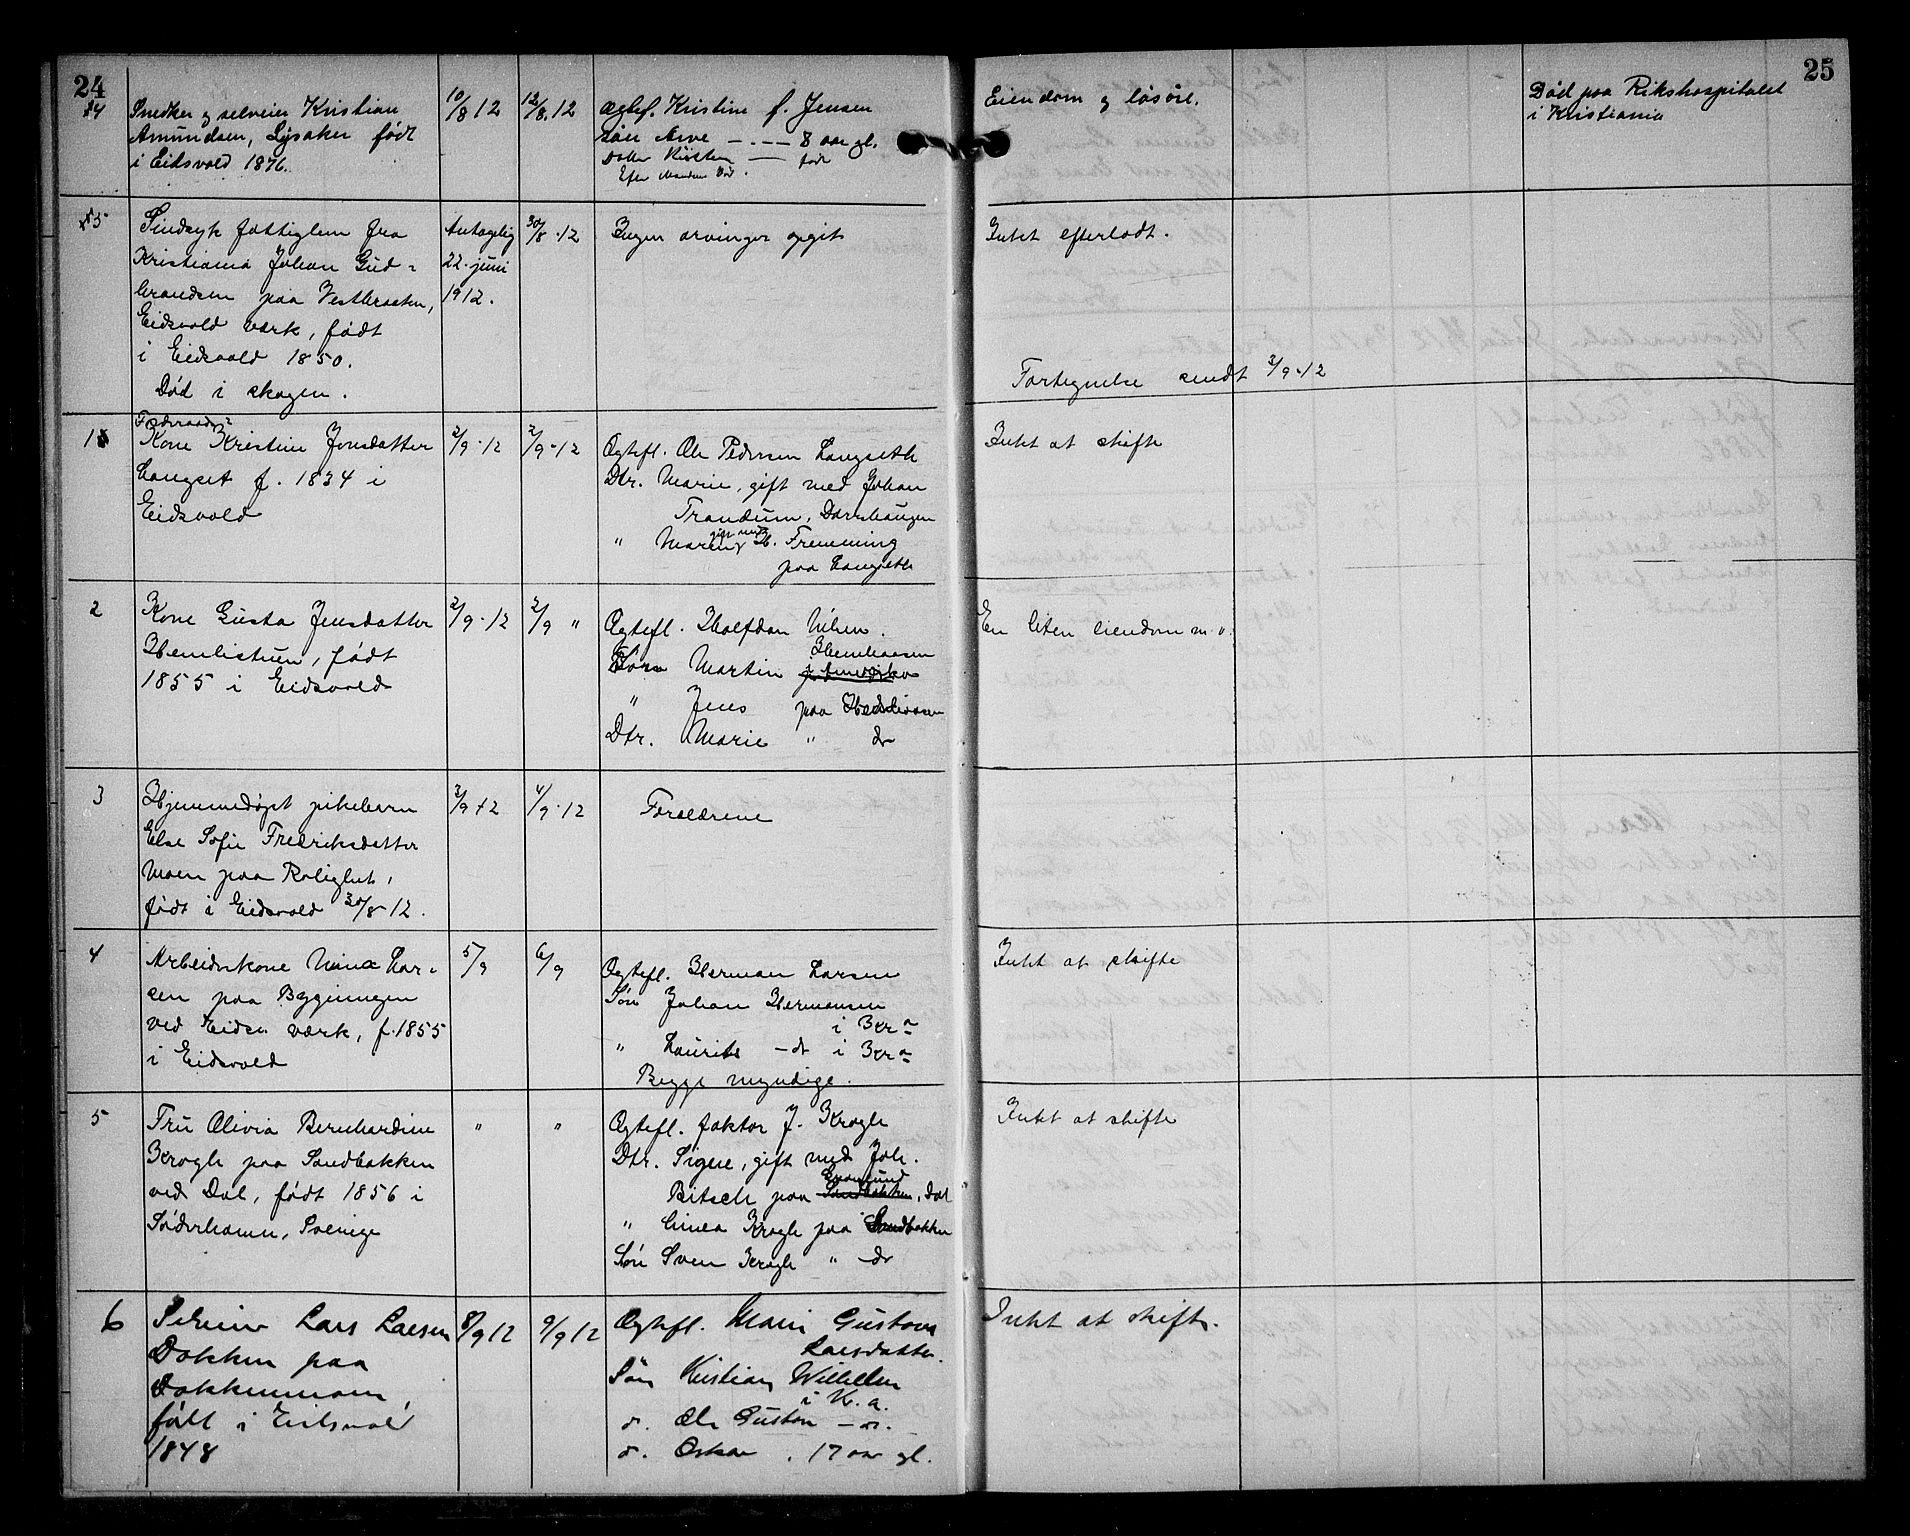 24
25
14 Snedker og selveier Kristian 10/8 12 12/8.12 Ægtef. Kristine f. Jensen Eiendom og lösöre. Död paa Rikshospitalet
Amundsen, Lysaker födt Sön Arve — . — 8 aar gl. i Kristiania
i Eidsvold 1876. Datter Kirsten — födt
Efter Mandens Död.
15 Sindsyk fattiglem fra Antagelig 30/8.12 Ingen arvinger opgit Intet efterladt.
Kristiania Johan Gud- 22. juni
brandsen paa Vestbraaten, 1912.
Eidsvold værk, född
i Eidsvold 1850.
Död i skogen. Fortegnelse sendt 3/9.12
1 Föderaads-
Kone Kristine Jonsdatter 2/9.12 2/9.12 Ægtefl. Ole Pedersen Langseth Intet at skifte
Langset f. 1834 i Dtr. Marie, gift med Johan
Eidsvold Trandum,
" gift med H. Fremming
paa Langseth
2 Kone Gusta Jensdatter 2/9.12 2/9 " Ægtefl. Halfdan Nilsen. En liten eiendom m.v.
Hemlistuen, födt Sön Martin
1855 i Eidsvold " Jens paa
Dtr. Marie " do
3 Hjemmedöpt pikebarn 3/9 12 4/9.12 Forældrene
Else Sofie Fredriksdatter
Moen paa Roliglut,
födt i Eidsvold 30/8 12.
4 Arbeiderkone Nina Lar- 5/9 6/9 Ægtefl. Herman Larsen Intet at skifte
sen paa Bygningen Sön Johan Hermansen
ved Eidsv. værk, f. 1855 i Kra
i Eidsvold " Laurits — do i Kra
Begge myndige.
5 Fru Olivia Bernhardine " " Ægtefl. faktor J. Krogh Intet at skifte
Krogh paa Sandbakken Dtr. Signe, gift med Joh.
ved Dal, födt 1856 i Bitsch paa Sandbakken, Dal
Söderhamn, Sverige " Linea Krogh paa Sandbakken
Sön Sven Krogh " do
6 Selveier Lars Larsen 8/9 12 9/9 12 Ægtefl. Mari Gustava Intet at skifte.
Dokken paa Larsdatter.
Dokkenmoen Sön Kristian Wilhelm
födt i Eidsvold i K. a.
1848 do. Ole Gustav — do. —
do. Oskar . 17 aar gl.